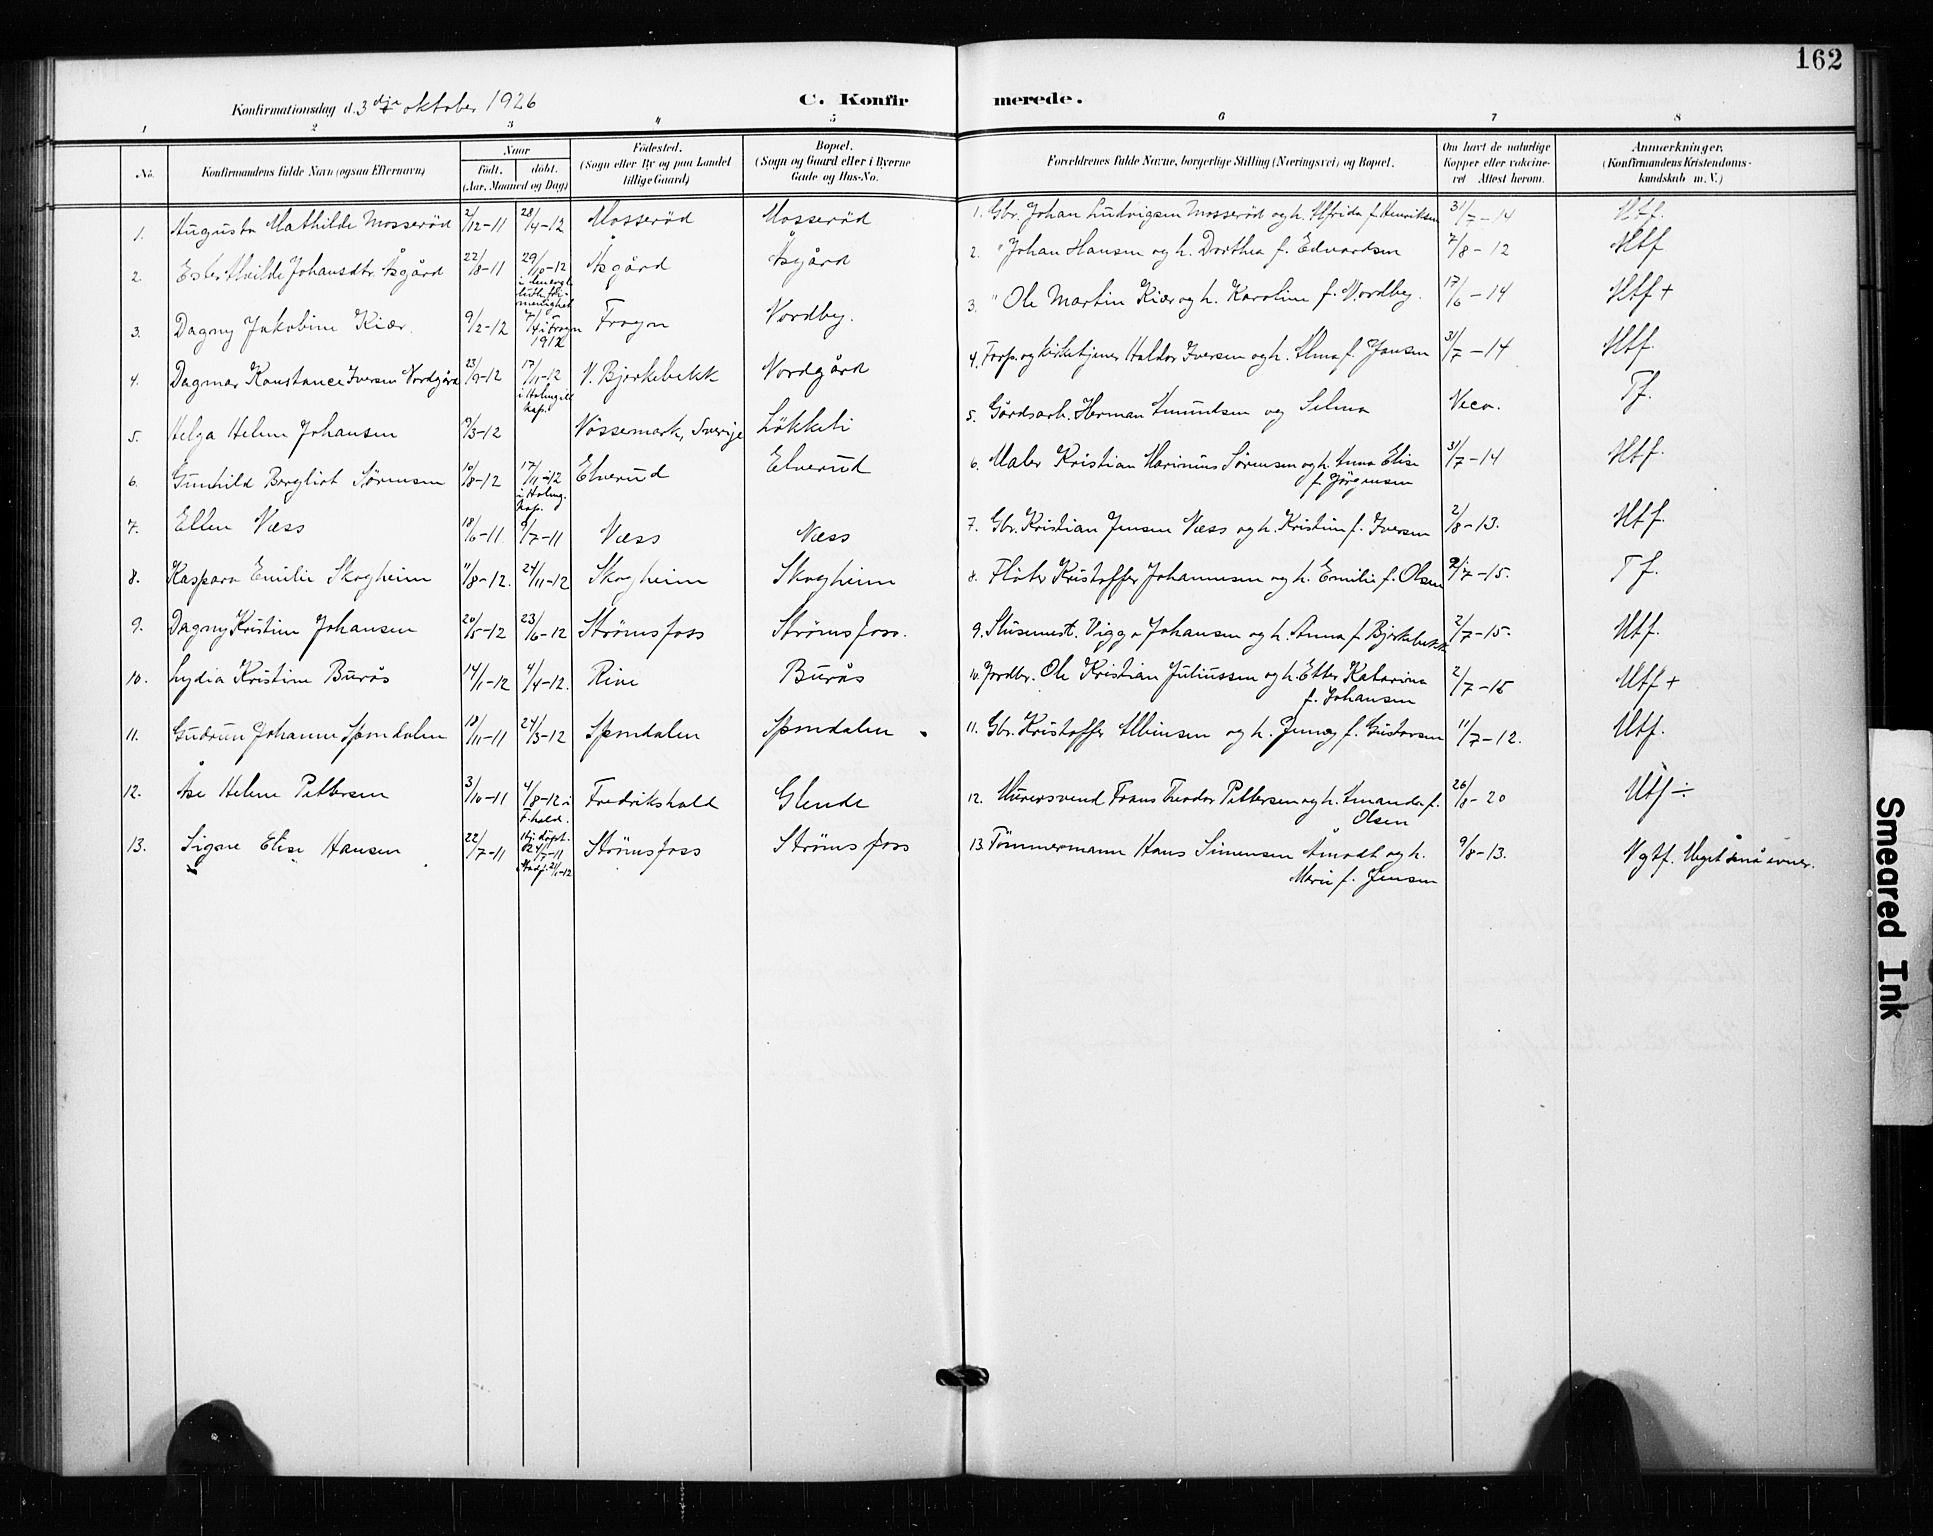 162
Konfirmationsdag d. 3dje oktober 1926
C. Konfirmerede.
1 2 3 4 5 6 7 8
No. Konfirmandens fulde Navn (ogsaa Efternavn) Naar født. døbt. (Aar, Maaned og Dag) Födested. (Sogn eller By og paa Landet tillige Gaard) Bopæl. (Sogn og Gaard eller i Byerne Gade og Hus-No. Forældrenes fulde Navne, borgerlige Stilling (Næringsvei) og Bopæl. Om havt de naturlige Kopper eller vakcineret Attest herom. Anmerkninger, (Konfirmandens Kristendomskundskab m. V.)
1. Augusta Mathilde Mosserød 2/12-11 28/4-12 Mosserød Mosserød 1. Gbr. Johan Ludvigsen Mosserød og h. Alfrida f. Henriksen 31/7-14 Mtf.
2. Ester Alvilde Johansdtr. Åsgård 22/8-11 29/10-12 Åsgård Åsgård 2. " Johan Hansen og h. Dorthea f. Edvardsen 7/8-12 Mtf
3. Dagny Jakobine Kiær. 9/2-12 7/4 i Frogn 1912 Frogn Nordby. 3. " Ole Martin Kiær og h. Karoline f. Nordby. 17/6-14 Mtf +
4. Dagmar Konstance Iversen Nordgård 23/9-12 17/11-12 i Holmgil kap. V. Bjerkebekk Nordgård 4. Forp. og kirketjener Haldor Iversen og h. Alma f. Jansen 31/7-14 Mtf.
5. Helga Helene Johansen 9/3-12 Nössemark, Sverige Løkkeli 5. Gårdsarb. Herman Amundsen og Selma Vecv. Tf.
6. Gunhild Bergliot Sørensen 10/8-12 17/11-12 i Holmg. kap. Elverud Elverud 6. Maler Kristian Marinius Sørensen og h. Anna Elise f. Jörgensen 31/7-14 Mtf.
7. Ellen Næss 18/6-11 9/7-11 Næss Næss 7. Gbr. Kristian Jensen Næss og h. Kristine f. Iversen 2/8-13. Mtf.
8. Kaspara Emilie Skogheim 11/8-12. 24/11-12 Skogheim Skogheim 8. Fløter Kristoffer Johannesen og h. Emilie f. Olsen 2/7-15. Tf.
9. Dagny Kristine Johansen 20/5-12 23/6-12 Strömsfoss Strömsfoss. 9. Slusemest. Viggo Johansen og h. Anna f. Bjerkebekk 2/7-15. Mtf.
10. Lydia Kristine Burås 14/1-12 4/4-12. Rive Burås 10. Jordbr. Ole Kristian Juliussen og h. Etter Katarina f. Johansen 2/7-15 Mtf +
11. Gudrun Johanne Spondalen 10/11-11 24/3-12 Spondalen Spondalen 11. Gbr. Kristoffer Albinsen og h. Jenny f. Gustavsen 11/7-12. Mtf.
12. Åse Helene Pettersen 3/10-11 4/8-12 i F.hald. Fredrikshald Glende 12. Murersvend Frans Theodor Pettersen og h. Amanda f. Olsen 26/8-20 Mtf ÷
13. Signe Elise Hansen 22/7-11 Hj. døpt. 24/7-11 Stadf. 21/1-12 Strömsfoss Strömsfoss 13. Tömmermann Hans Simensen Åmodt og h. Marie f. Jensen 9/8-13. Ngtf. Meget små evner.
Smeared Ink